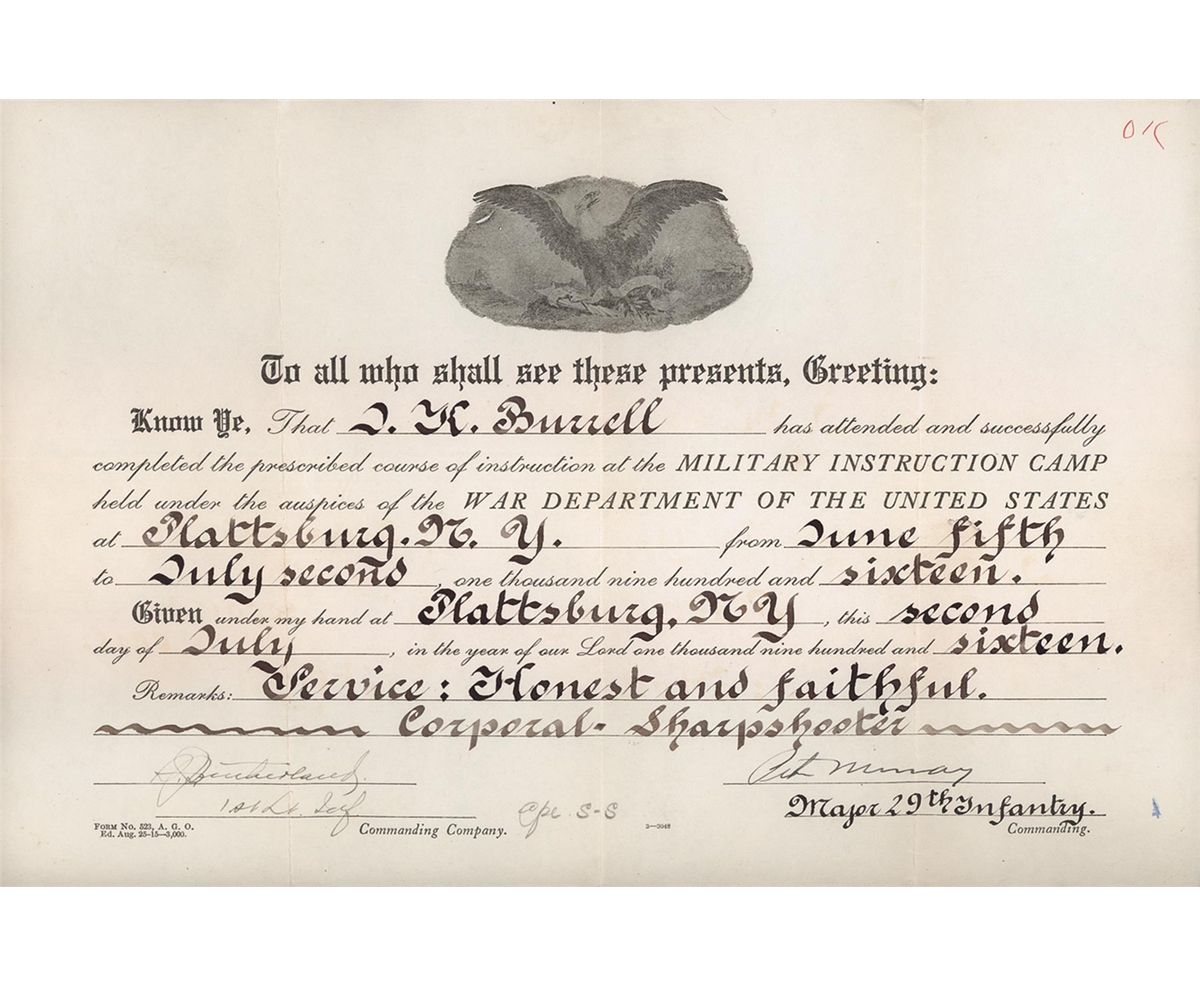 OK
To all who shall see these presents, Greeting:
Know Ye, That K. Burrell has attended and successfully
completed the prescribed course of instruction at the MILITARY INSTRUCTION CAMP
held under the auspices of the WAR DEPARTMENT OF THE UNITED STATES
at Plattsburg, N. Y. from June fifth
to July second, one thousand nine hundred and sixteen.
Given under my hand at Plattsburg, NY, this second
day of July, in the year of our Lord one thousand nine hundred and sixteen.
Remarks: Service: Honest and faithful.
Corporal- Sharpshooter
Murray
1st Lt. Inf
Major 29th Infantry.
Form No. 523, A. G. O.
Ed. Aug. 25-15—3,000.
Commanding Company.
S-S
3—2048
Commanding.